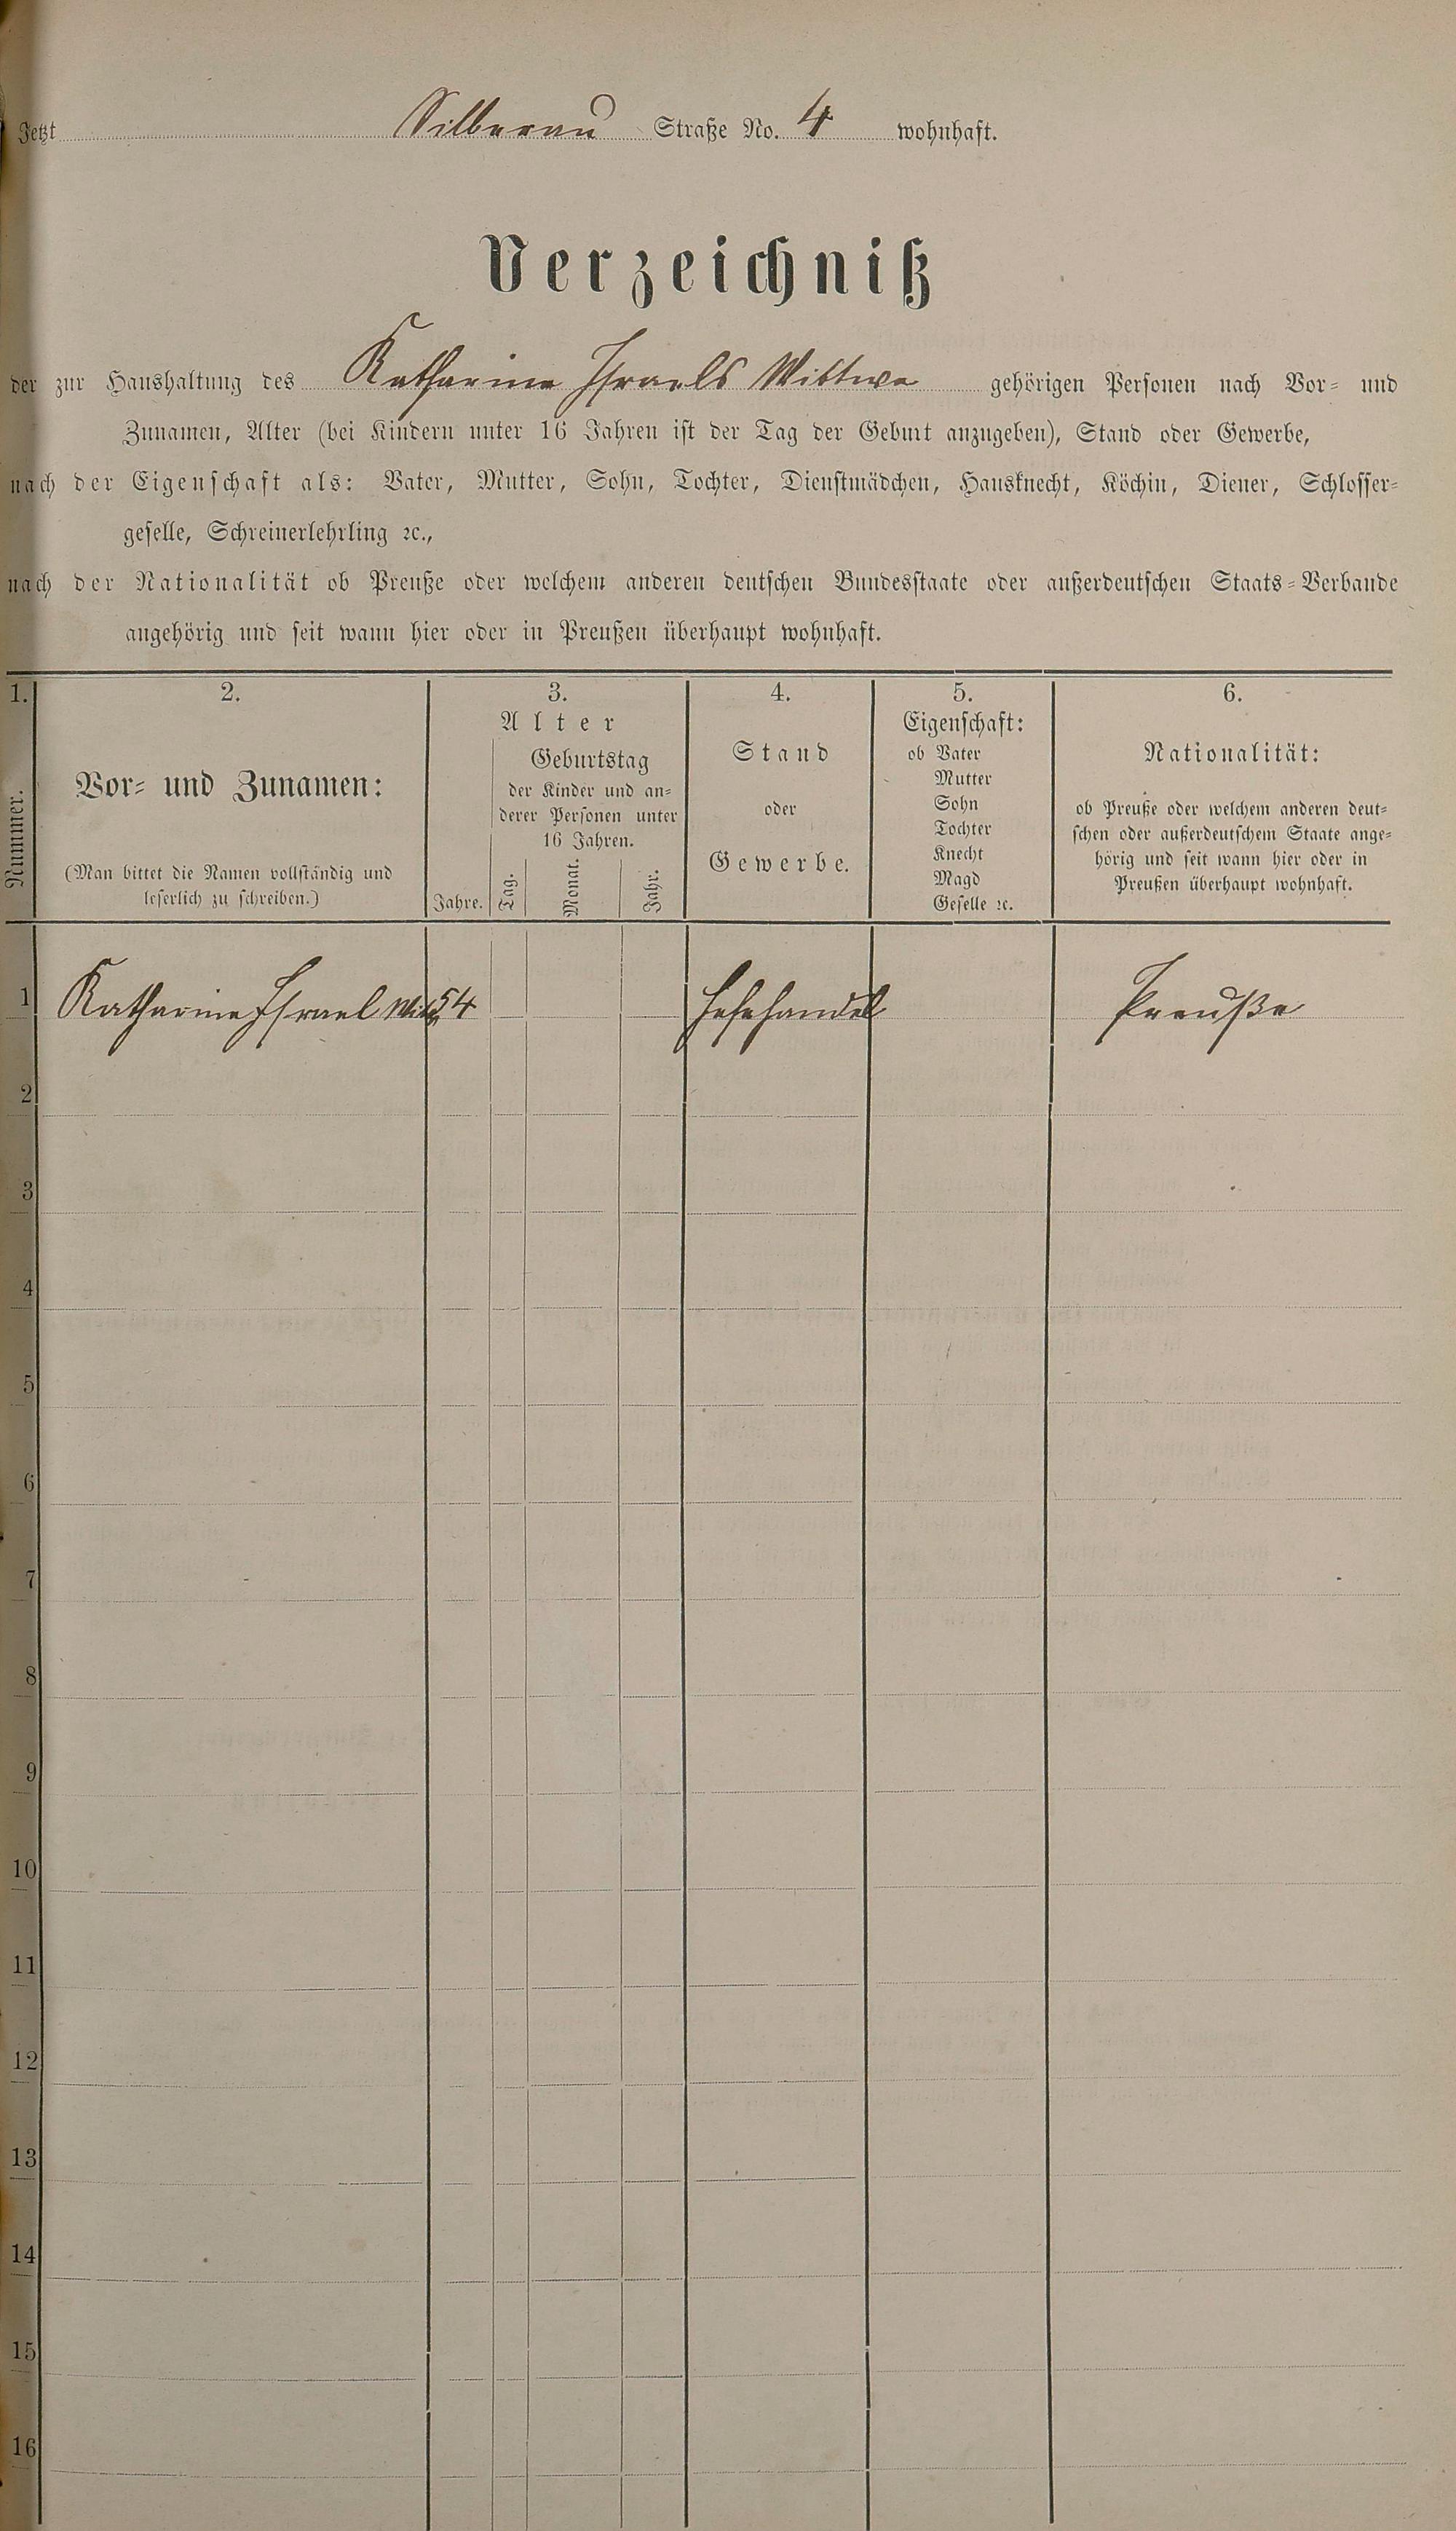 Jetzt Silberau Straße No. 4 wohnhaft.
Verzeichniß
der zur Haushaltung des Katharina Israels Wittwe gehörigen Personen nach Vor- und
Zunamen, Alter (bei Kindern unter 16 Jahren ist der Tag der Geburt anzugeben), Stand oder Gewerbe,
nach der Eigenschaft als: Vater, Mutter, Sohn, Tochter, Dienstmädchen, Hausknecht, Köchin, Diener, Schlosser-
geselle, Schreinerlehrling ꝛc.,
nach der Nationalität ob Preuße oder welchem anderen deutschen Bundesstaate oder außerdeutschen Staats-Verbande
angehörig und seit wann hier oder in Preußen überhaupt wohnhaft.
1. 2. 3. 4. 5. 6.
Nummer.
Vor- und Zunamen:
(Man bittet die Namen vollständig und
leserlich zu schreiben.)
Alter
Jahre.
Geburtstag
der Kinder und an-
derer Personen unter
16 Jahren.
Tag.
Monat.
Jahr.
Stand
oder
Gewerbe.
Eigenschaft:
ob Vater
Mutter
Sohn
Tochter
Knecht
Magd
Geselle ꝛc.
Nationalität:
ob Preuße oder welchem anderen deut-
schen oder außerdeutschem Staate ange-
hörig und seit wann hier oder in
Preußen überhaupt wohnhaft.
1 Katharina Israel 54 Hefehandel Preuße
2
3
4
5
6
7
8
9
10
11
12
13
14
15
16